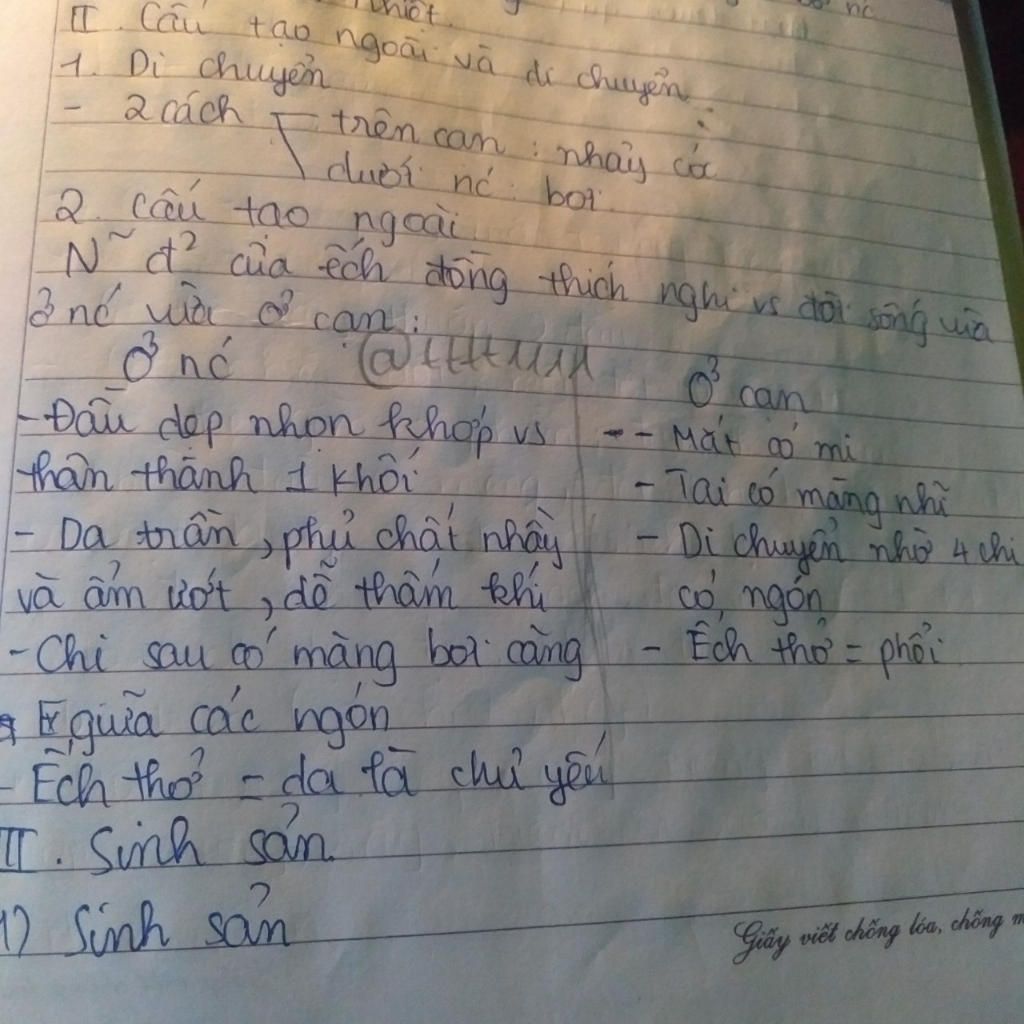 nc
II. Cấu tạo ngoài và di chuyển:
1. Di chuyển
- 2 cách trên cạn: nhảy cóc
dưới nć: bơi
2. Cấu tạo ngoài
N~ đ² của ếch đồng thích nghi vs đời sống vừa
ở nć vừa ở cạn:
Ở nć
Ở cạn
- Đầu dẹp nhọn khớp vs
thân thành 1 khối
- Da trần, phủ chất nhầy
và ẩm ướt, dễ thấm khí
- Chi sau có màng bơi căng
giữa các ngón
- Ếch thở = da là chủ yếu
- Mắt có mi
- Tai có màng nhĩ
- Di chuyển nhờ 4 chi
có ngón
- Ếch thở = phổi
II. Sinh sản
1) Sinh sản
Giấy viết chống lóa, chống m